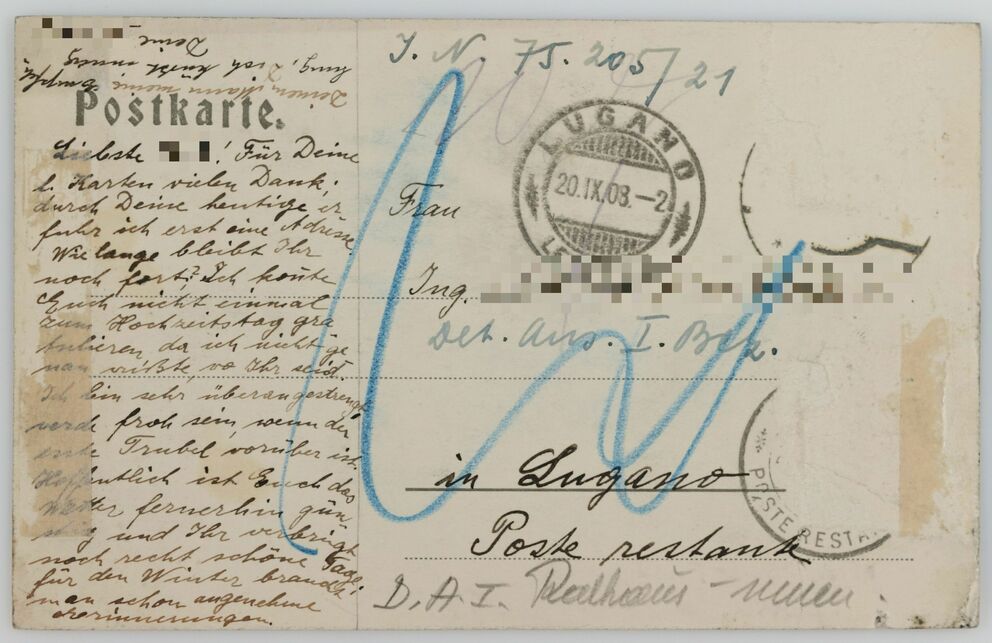 Postkarte.
Liebste ! Für Deine
l. Karten vielen Dank;
durch Deine heutige er
fuhr ich erst eine Adresse
Wie lange bleibt Ihr
noch fort? Ich konte
Euch nicht einmal
zum Hochzeitstag gra
tulieren, da ich nicht ge
nau wüßte, wo Ihr seid.
Ich bin sehr überangestrengt
werde froh sein, wenn der
erste Trubel vorüber ist.
Hoffentlich ist Euch das
Wetter fernerhin gün
stig und Ihr verbringt
noch recht schöne Tage,
für den Winter braucht
man schon angenehme
Erinnerungen.
Deinem Mann meine
Empfeh
lung, Dich küßt innig
Deine
I. N. 75.205/21
LUGANO
20.IX.08.–2
Frau
Ing.
Det. Aus. I. Bez.
in Lugano
Poste restante
POSTE RESTA
D. A. I. Rathaus -